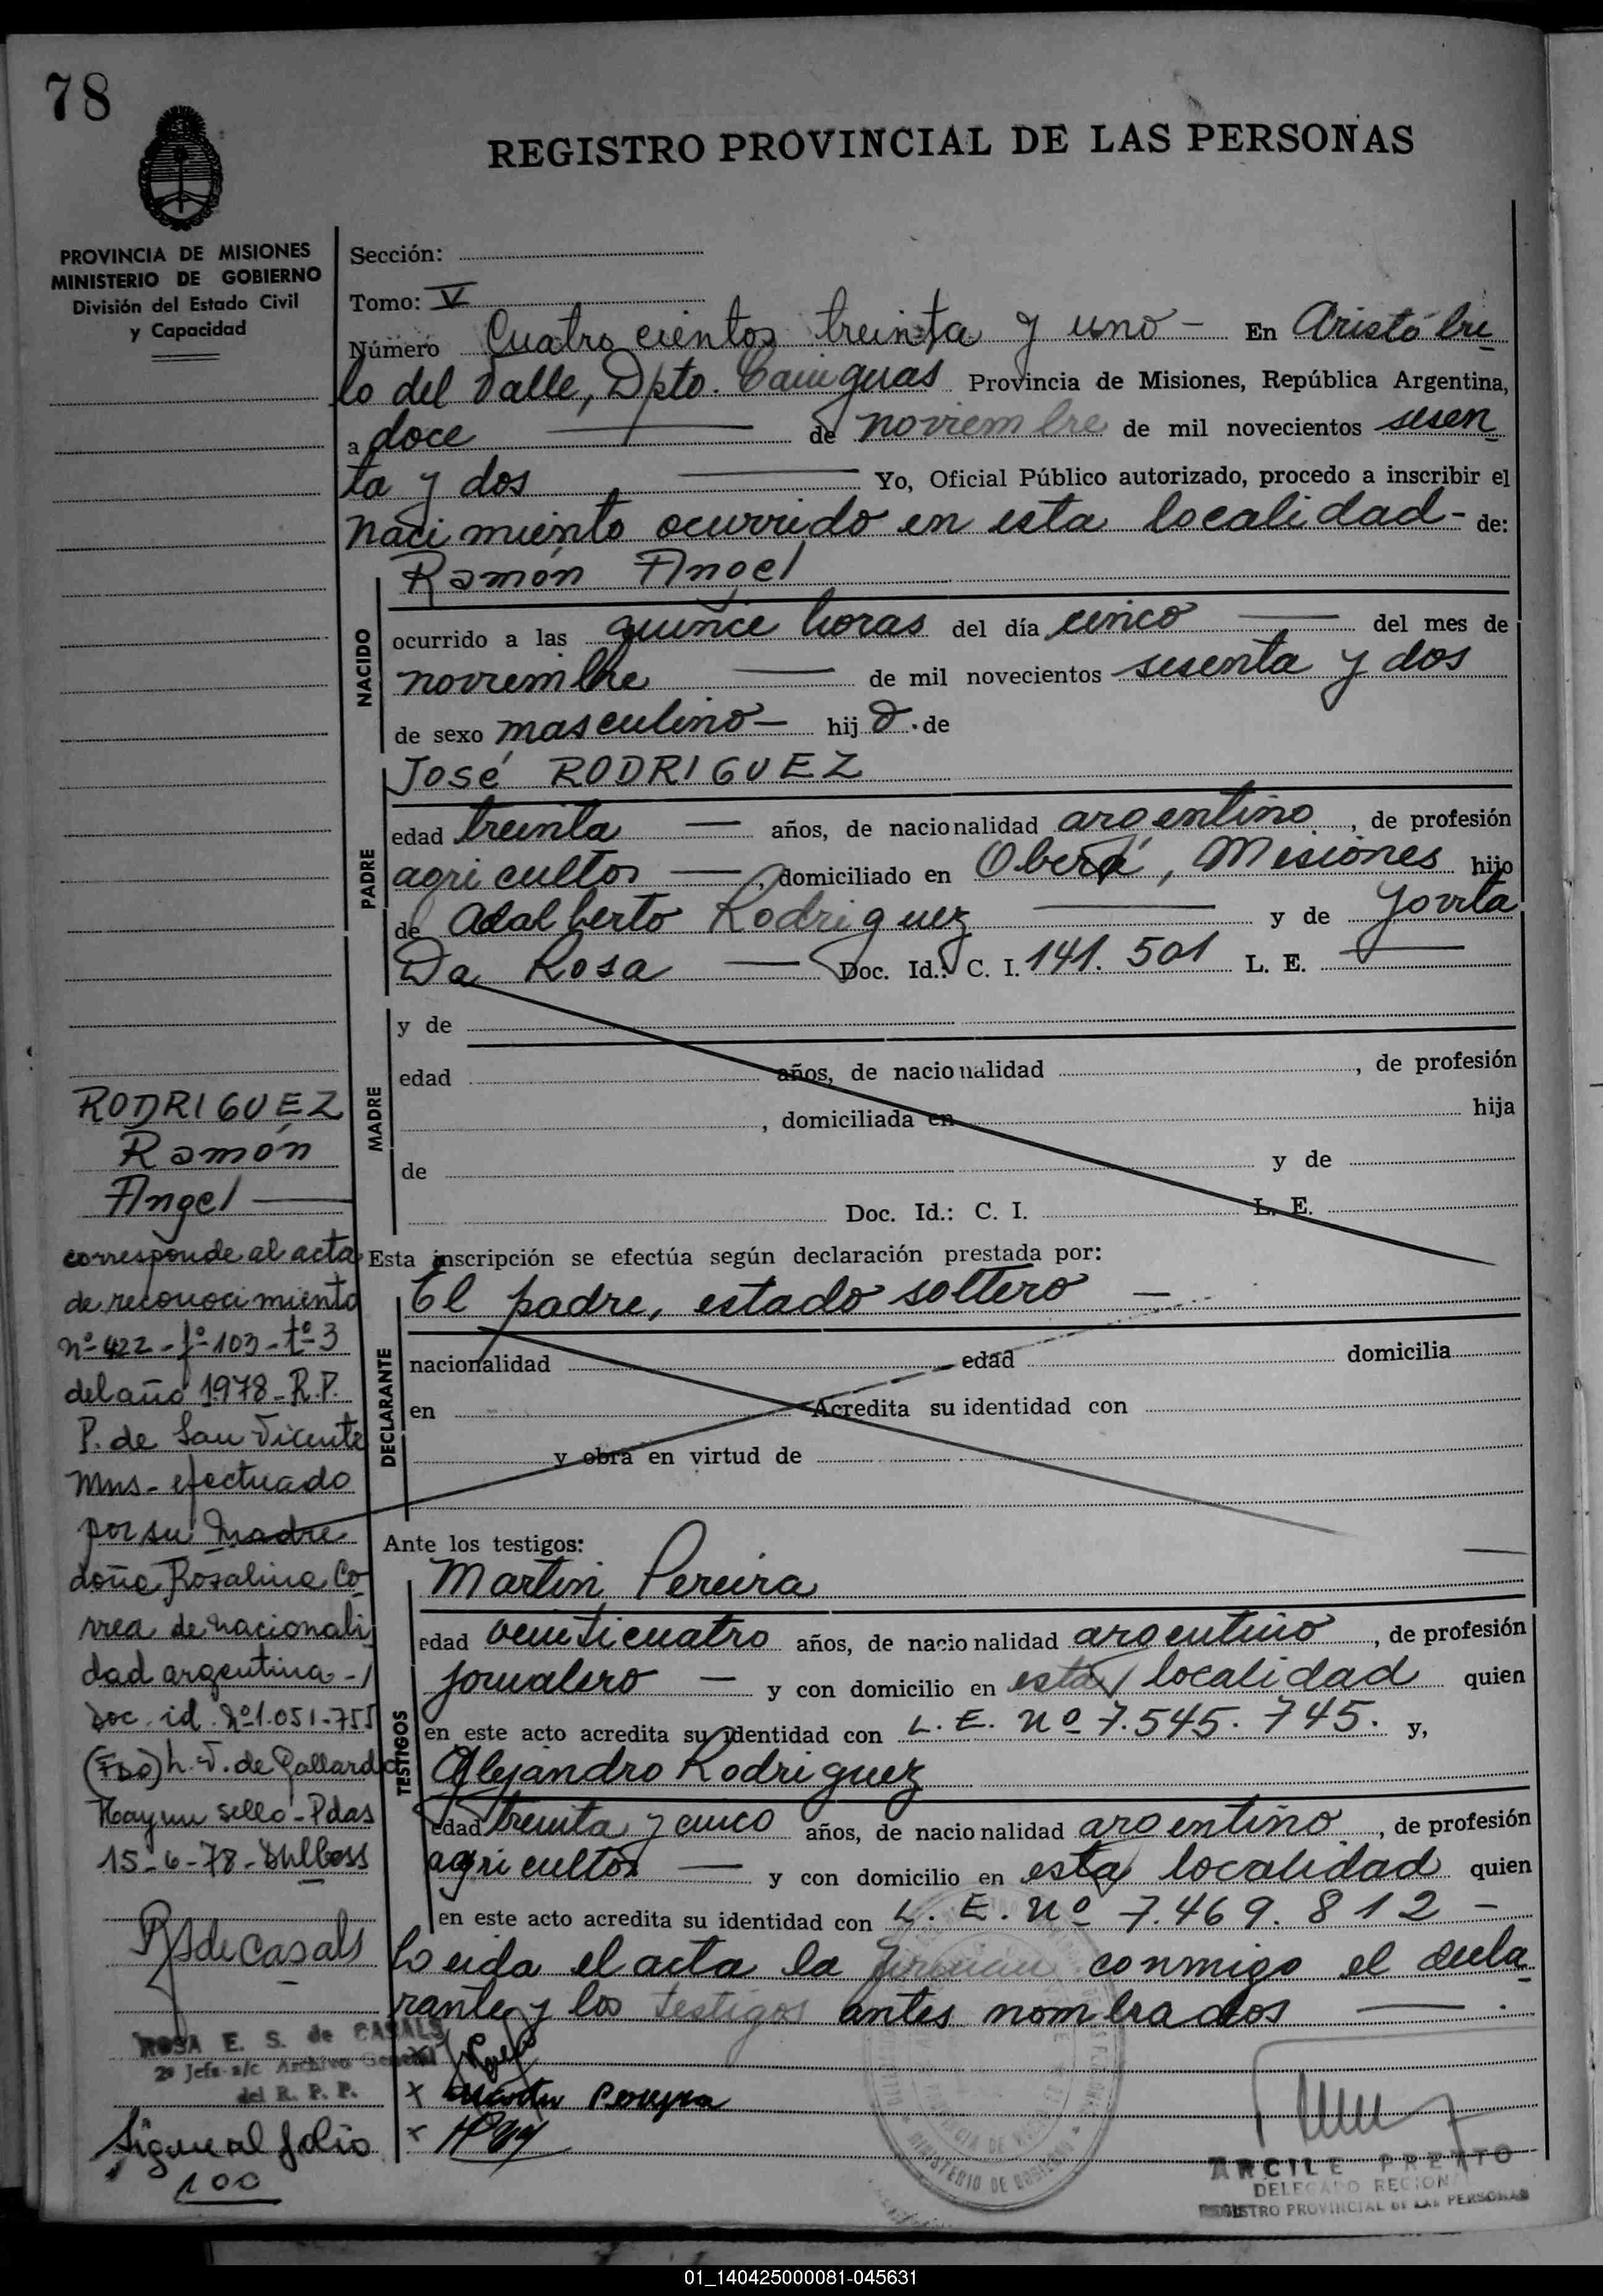 78
REGISTRO PROVINCIAL DE LAS PERSONAS
PROVINCIA DE MISIONES
MINISTERIO DE GOBIERNO
División del Estado Civil
y Capacidad
Sección:
Tomo: V
Número Cuatro cientos treinta y uno - En Aristó bu
lo del Valle, Dpto. Cainguas Provincia de Misiones, República Argentina,
a doce de noviembre de mil novecientos sesen
ta y dos Yo, Oficial Público autorizado, procedo a inscribir el
nacimiento ocurrido en esta localidad - de:
NACIDO
Ramón Angel
ocurrido a las quince horas del día cinco del mes de
noviembre de mil novecientos sesenta y dos
de sexo masculino - hij o de
PADRE
José RODRIGUEZ
edad treinta años, de nacionalidad argentino, de profesión
agricultor, domiciliado en Oberá, Misiones hijo
de Adalberto Rodriguez y de Jovita
Da Rosa Doc. Id.: C. I. 141.501 L. E.
MADRE
y de
edad años, de nacionalidad , de profesión
, domiciliada en hija
de y de
Doc. Id.: C. I. L. E.
Esta inscripción se efectúa según declaración prestada por:
DECLARANTE
El padre, estado soltero
nacionalidad edad domicilia
en Acredita su identidad con
y obra en virtud de
Ante los testigos:
TESTIGOS
Martin Pereira
edad veinticuatro años, de nacionalidad argentino, de profesión
jornalero y con domicilio en esta localidad quien
en este acto acredita su identidad con L. E. Nº 7.545.745. y,
Alejandro Rodriguez
edad treinta y cinco años, de nacionalidad argentino, de profesión
agricultor y con domicilio en esta localidad quien
en este acto acredita su identidad con L. E. Nº 7.469.812 -
Leida el acta la firman conmigo el decla
rante y los testigos antes nombrados
RODRIGUEZ
Ramón
Angel
corresponde al acta
de reconocimiento
nº 422 - fº 103 - tº 3
del año 1978 - R.P.
P. de San Vicente
Mns - efectuado
por su madre
doña Rosalina Co
rrea de nacionali
dad argentina -
Doc. id. Nº 1.051.755
(Fdo) L. V. de Gallardo
Hay un sello - Pdas
15-6-78
RS de Casals
ROSA E. S. de CASALS
2ª Jefa a/c Archivo General
del R. P. P.
Sigue al folio
100
x Martin Pereyra
x
MINISTERIO DE GOBIERNO
ARCILE PREATO
DELEGADO REGIONAL
REGISTRO PROVINCIAL DE LAS PERSONAS
01_140425000081-045631